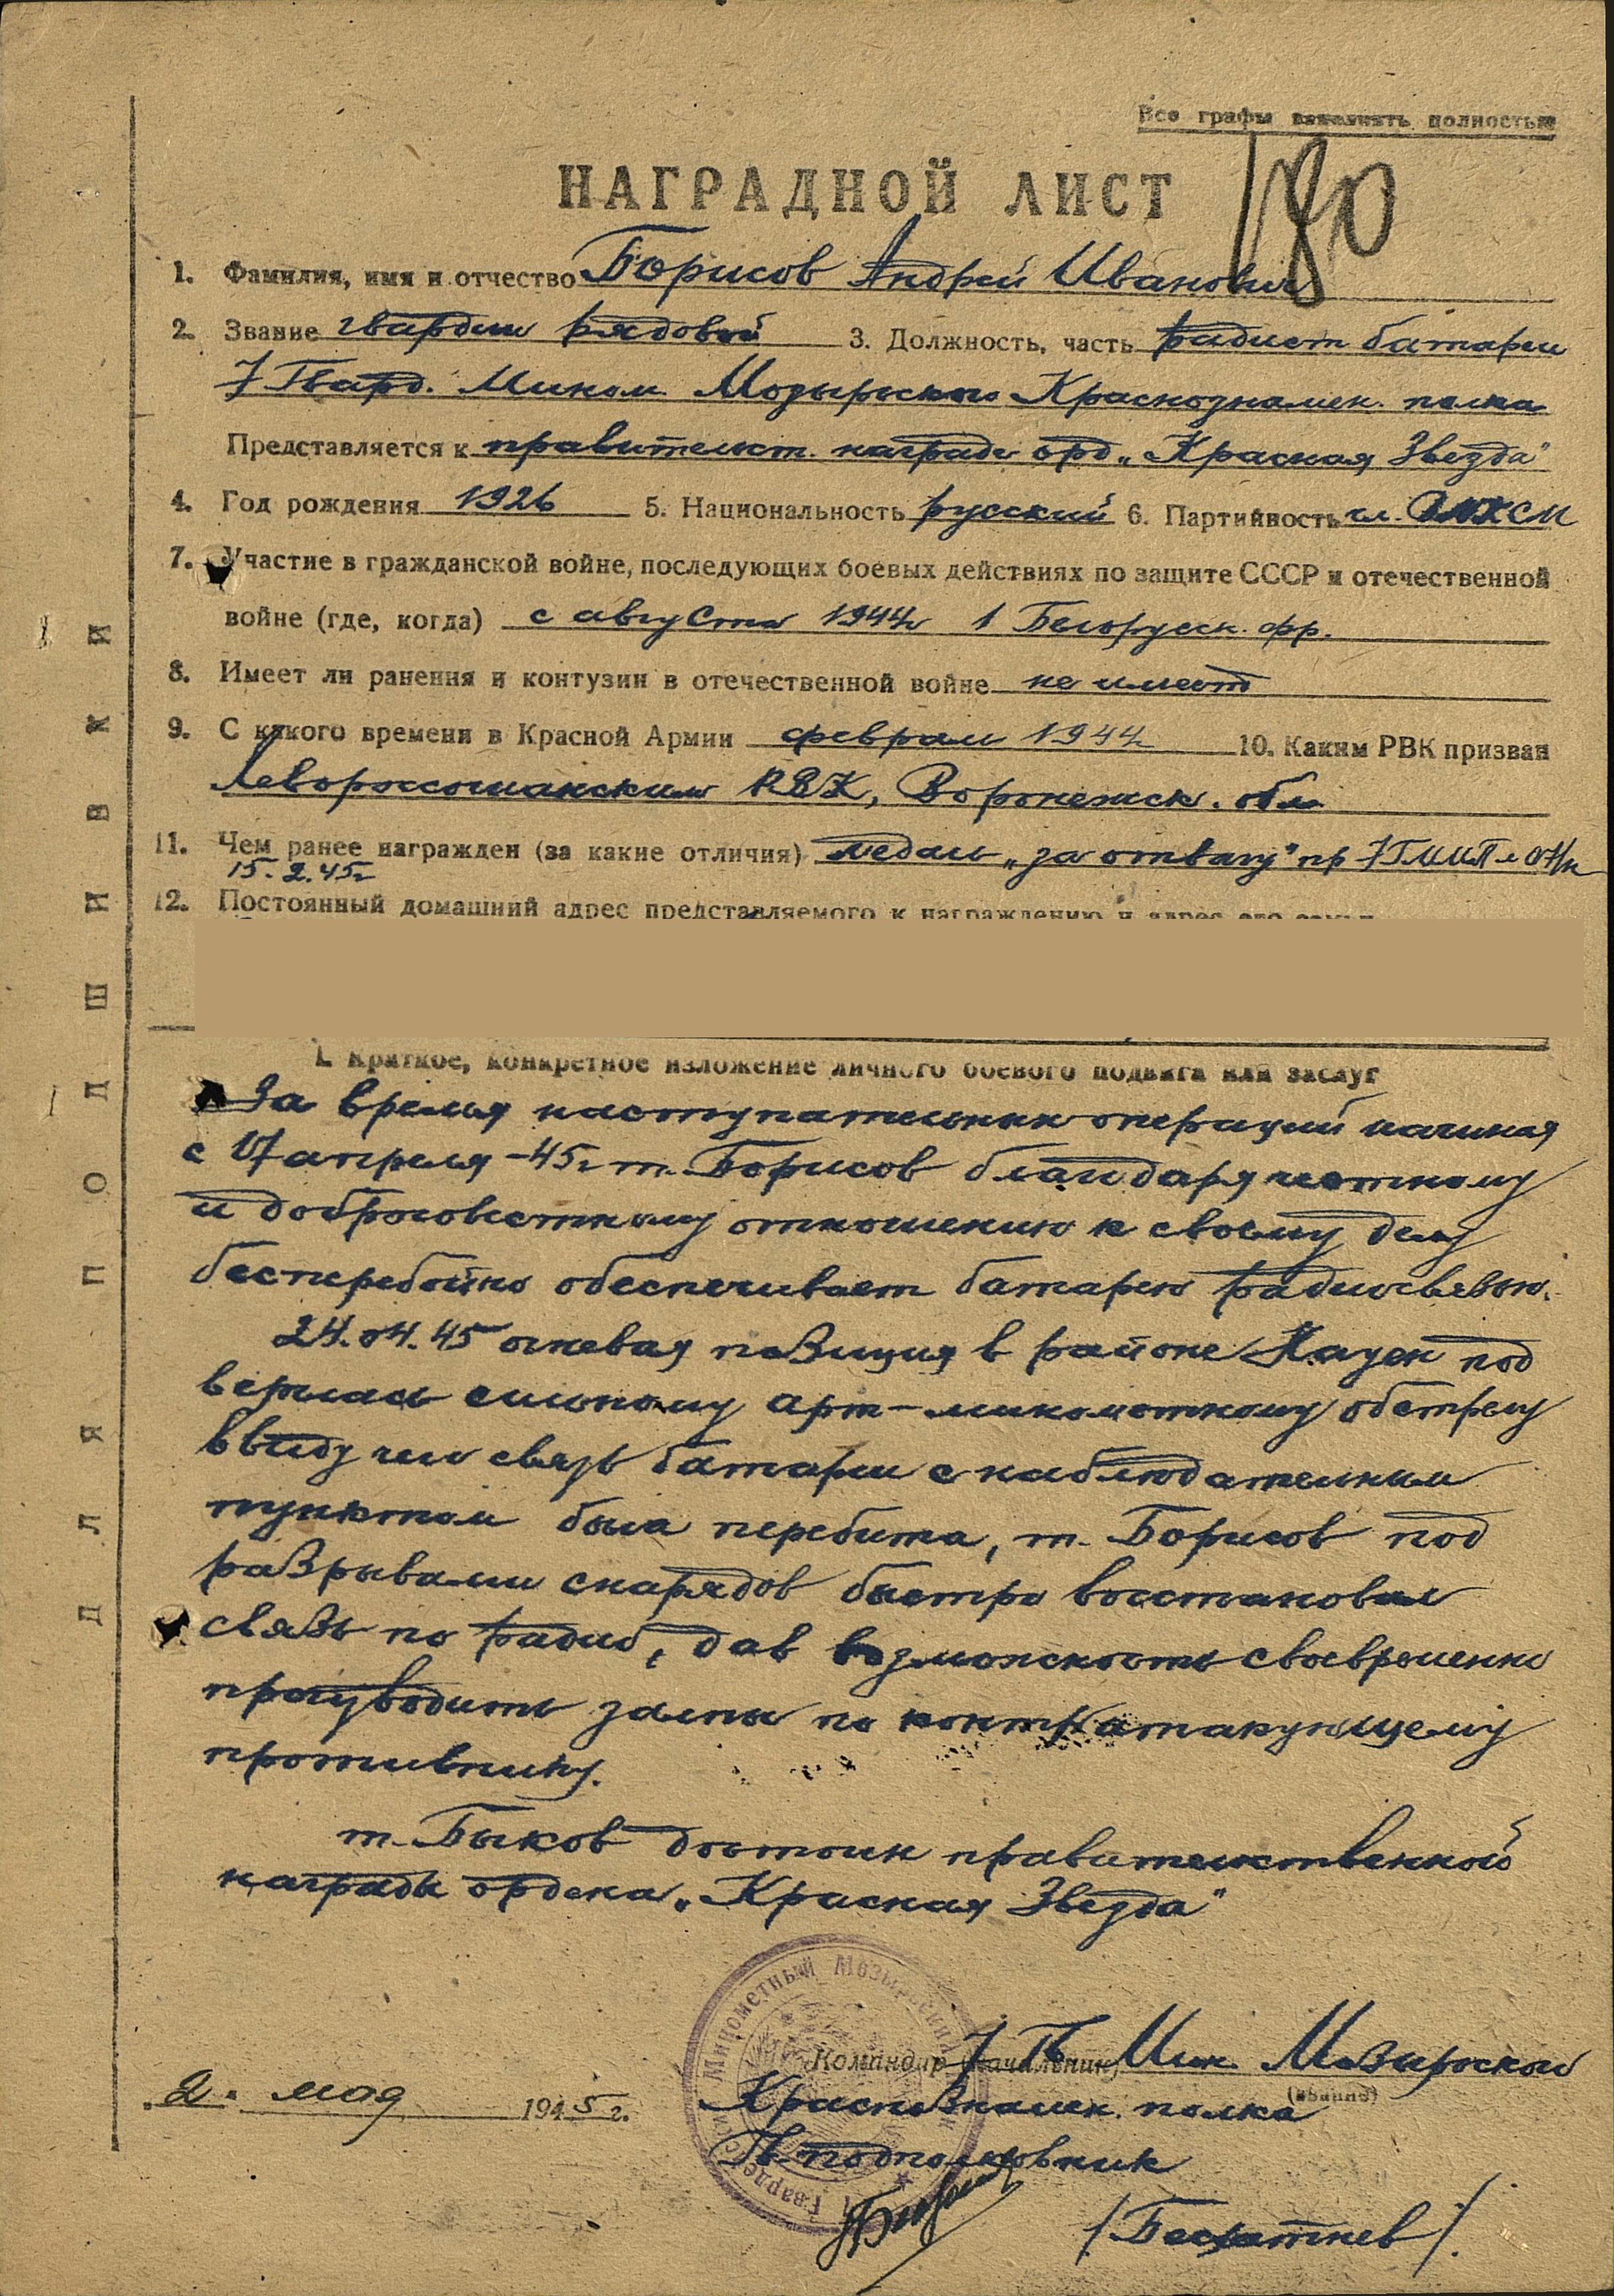 Все графы заполнять полностью
НАГРАДНОЙ ЛИСТ
180
1. Фамилия, имя и отчество Борисов Андрей Иванович
2. Звание гвардии рядовой 3. Должность, часть радист батареи
7 Гвард. Мином. Мозырьского Краснознамен. полка
Представляется к правительст. награде орд. „Красная Звезда"
4. Год рождения 1926 5. Национальность русский 6. Партийность чл. ВЛКСМ
7. Участие в гражданской войне, последующих боевых действиях по защите СССР и отечественной
войне (где, когда) с августа 1944г 1 Белорусск. фр.
8. Имеет ли ранения и контузии в отечественной войне не имеет
9. С какого времени в Красной Армии февраль 1944г 10. Каким РВК призван
Левороссошанским РВК, Воронежск. обл.
11. Чем ранее награжден (за какие отличия) медаль „за отвагу" пр 7 ГМП
15.2.45г
12. Постоянный домашний адрес представляемого к награждению и адрес его семьи
1. Краткое, конкретное изложение личного боевого подвига или заслуг
За время наступательных операций начиная
с 17 апреля -45г т. Борисов благодаря честному
и добросовестному отношению к своему делу
бесперебойно обеспечивает батарею радиосвязью.
24.04.45 огневая позиция в районе Кауен под
верглась сильному арт-минометному обстрелу
ввиду чего связь батареи с наблюдательным
пунктом была перебита, т. Борисов под
разрывами снарядов быстро восстановил
связь по радио, дав возможность своевременно
производить залпы по контратакующему
противнику.
т. Быков достоин правительственной
награды ордена „Красная Звезда"
Командир (начальник) 7 Гв. Мин. Мозырьского
(звание)
Краснознамен. полка
2. мая 1945г.
Гв. подполковник
/Беспатнев/
Гвардейский Минометный Мозырьский
ДЛЯ ПОДШИВКИ